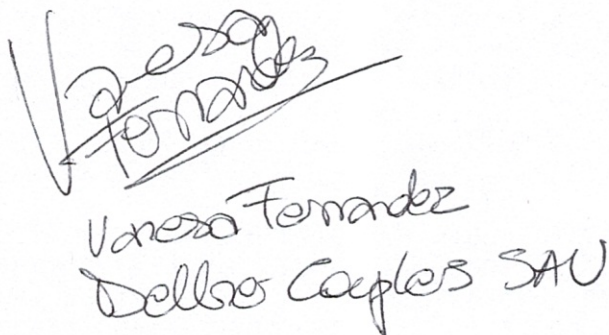 Vanesa
Fernandez
Vanesa Fernandez
Dellner Couplers SAU